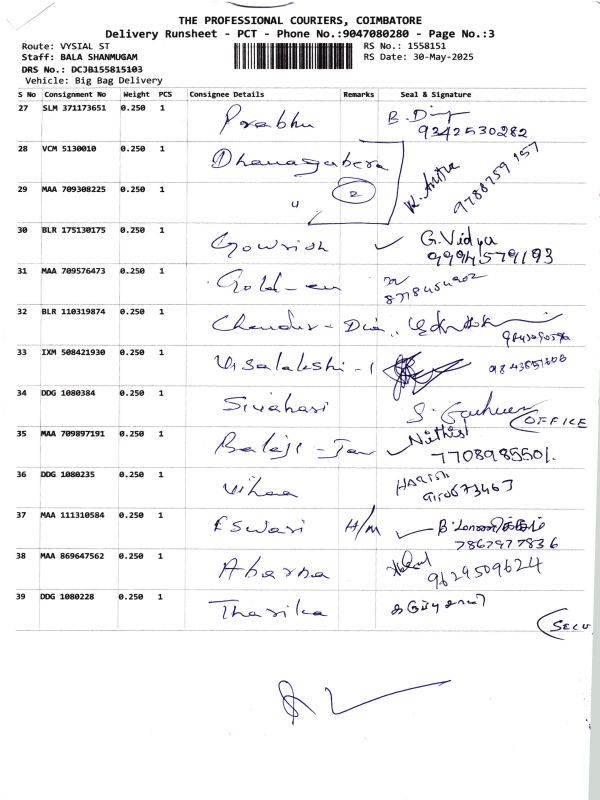 THE PROFESSIONAL COURIERS, COIMBATORE
Delivery Runsheet - PCT - Phone No.:9047080280 - Page No.:3
Route: VYSIAL ST RS No.: 1558151
Staff: BALA SHANMUGAM RS Date: 30-May-2025
DRS No.: DCJB155815103
Vehicle: Big Bag Delivery
S No Consignment No Weight PCS Consignee Details Remarks Seal & Signature
27 SLM 371173651 0.250 1 Prabhu
9342530282
28 VCM 5130010 0.250 1
9788759157
29 MAA 709308225 0.250 1 " 2
30 BLR 175130175 0.250 1 Gowrish G. Vidya
9994579193
31 MAA 709576473 0.250 1
32 BLR 110319874 0.250 1
33 IXM 508421930 0.250 1 Visalakshi - 1
34 DDG 1080384 0.250 1 Sivahari OFFICE
35 MAA 709897191 0.250 1 Balaji - Nithish
7708985501.
36 DDG 1080235 0.250 1 HARISH
37 MAA 111310584 0.250 1 Eswari H/M
7867977836
38 MAA 869647562 0.250 1 Abarna
9629509624
39 DDG 1080228 0.250 1 Tharika
SECU